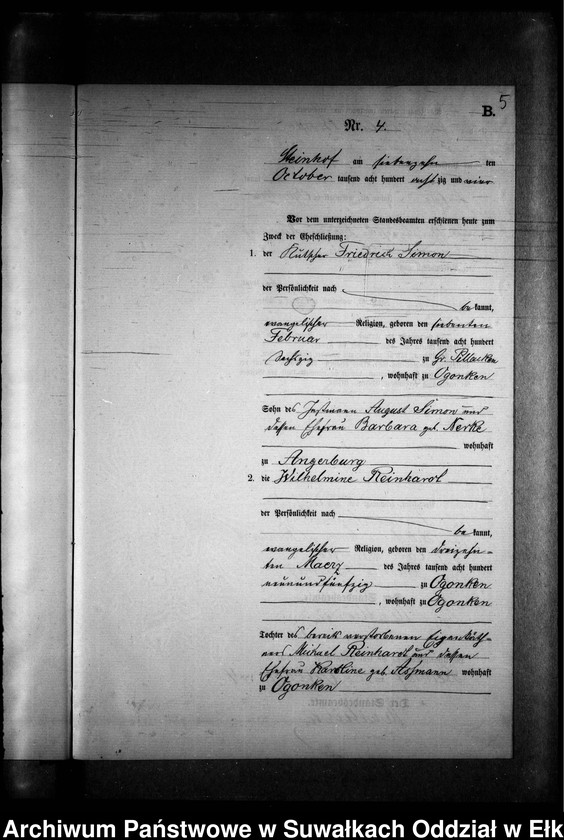 B. 5
Nr. 4.
Steinhof am siebenzehn ten
October tausend acht hundert acht zig und vier
Vor dem unterzeichneten Standesbeamten erschienen heute zum
Zweck der Eheschließung:
1. der Kutscher Friedrich Simon
der Persönlichkeit nach
be kannt,
evangelischer Religion, geboren den siebenten
Februar des Jahres tausend acht hundert
sechszig zu Gr. Pillacken
, wohnhaft zu Ogonken
Sohn des Instmann August Simon und
dessen Ehefrau Barbara geb. Nerke
wohnhaft
zu Angerburg
2. die Wilhelmine Reinhardt
der Persönlichkeit nach
be kannt,
evangelischer Religion, geboren den dreizehn-
ten Maerz des Jahres tausend acht hundert
neunundfünfzig zu Ogonken
, wohnhaft zu Ogonken
Tochter des bereits verstorbenen Eigenkäth-
ners Michael Reinhardt und dessen
Ehefrau Karoline geb. Assmann wohnhaft
zu Ogonken
Archiwum Państwowe w Suwałkach Oddział w Ełk